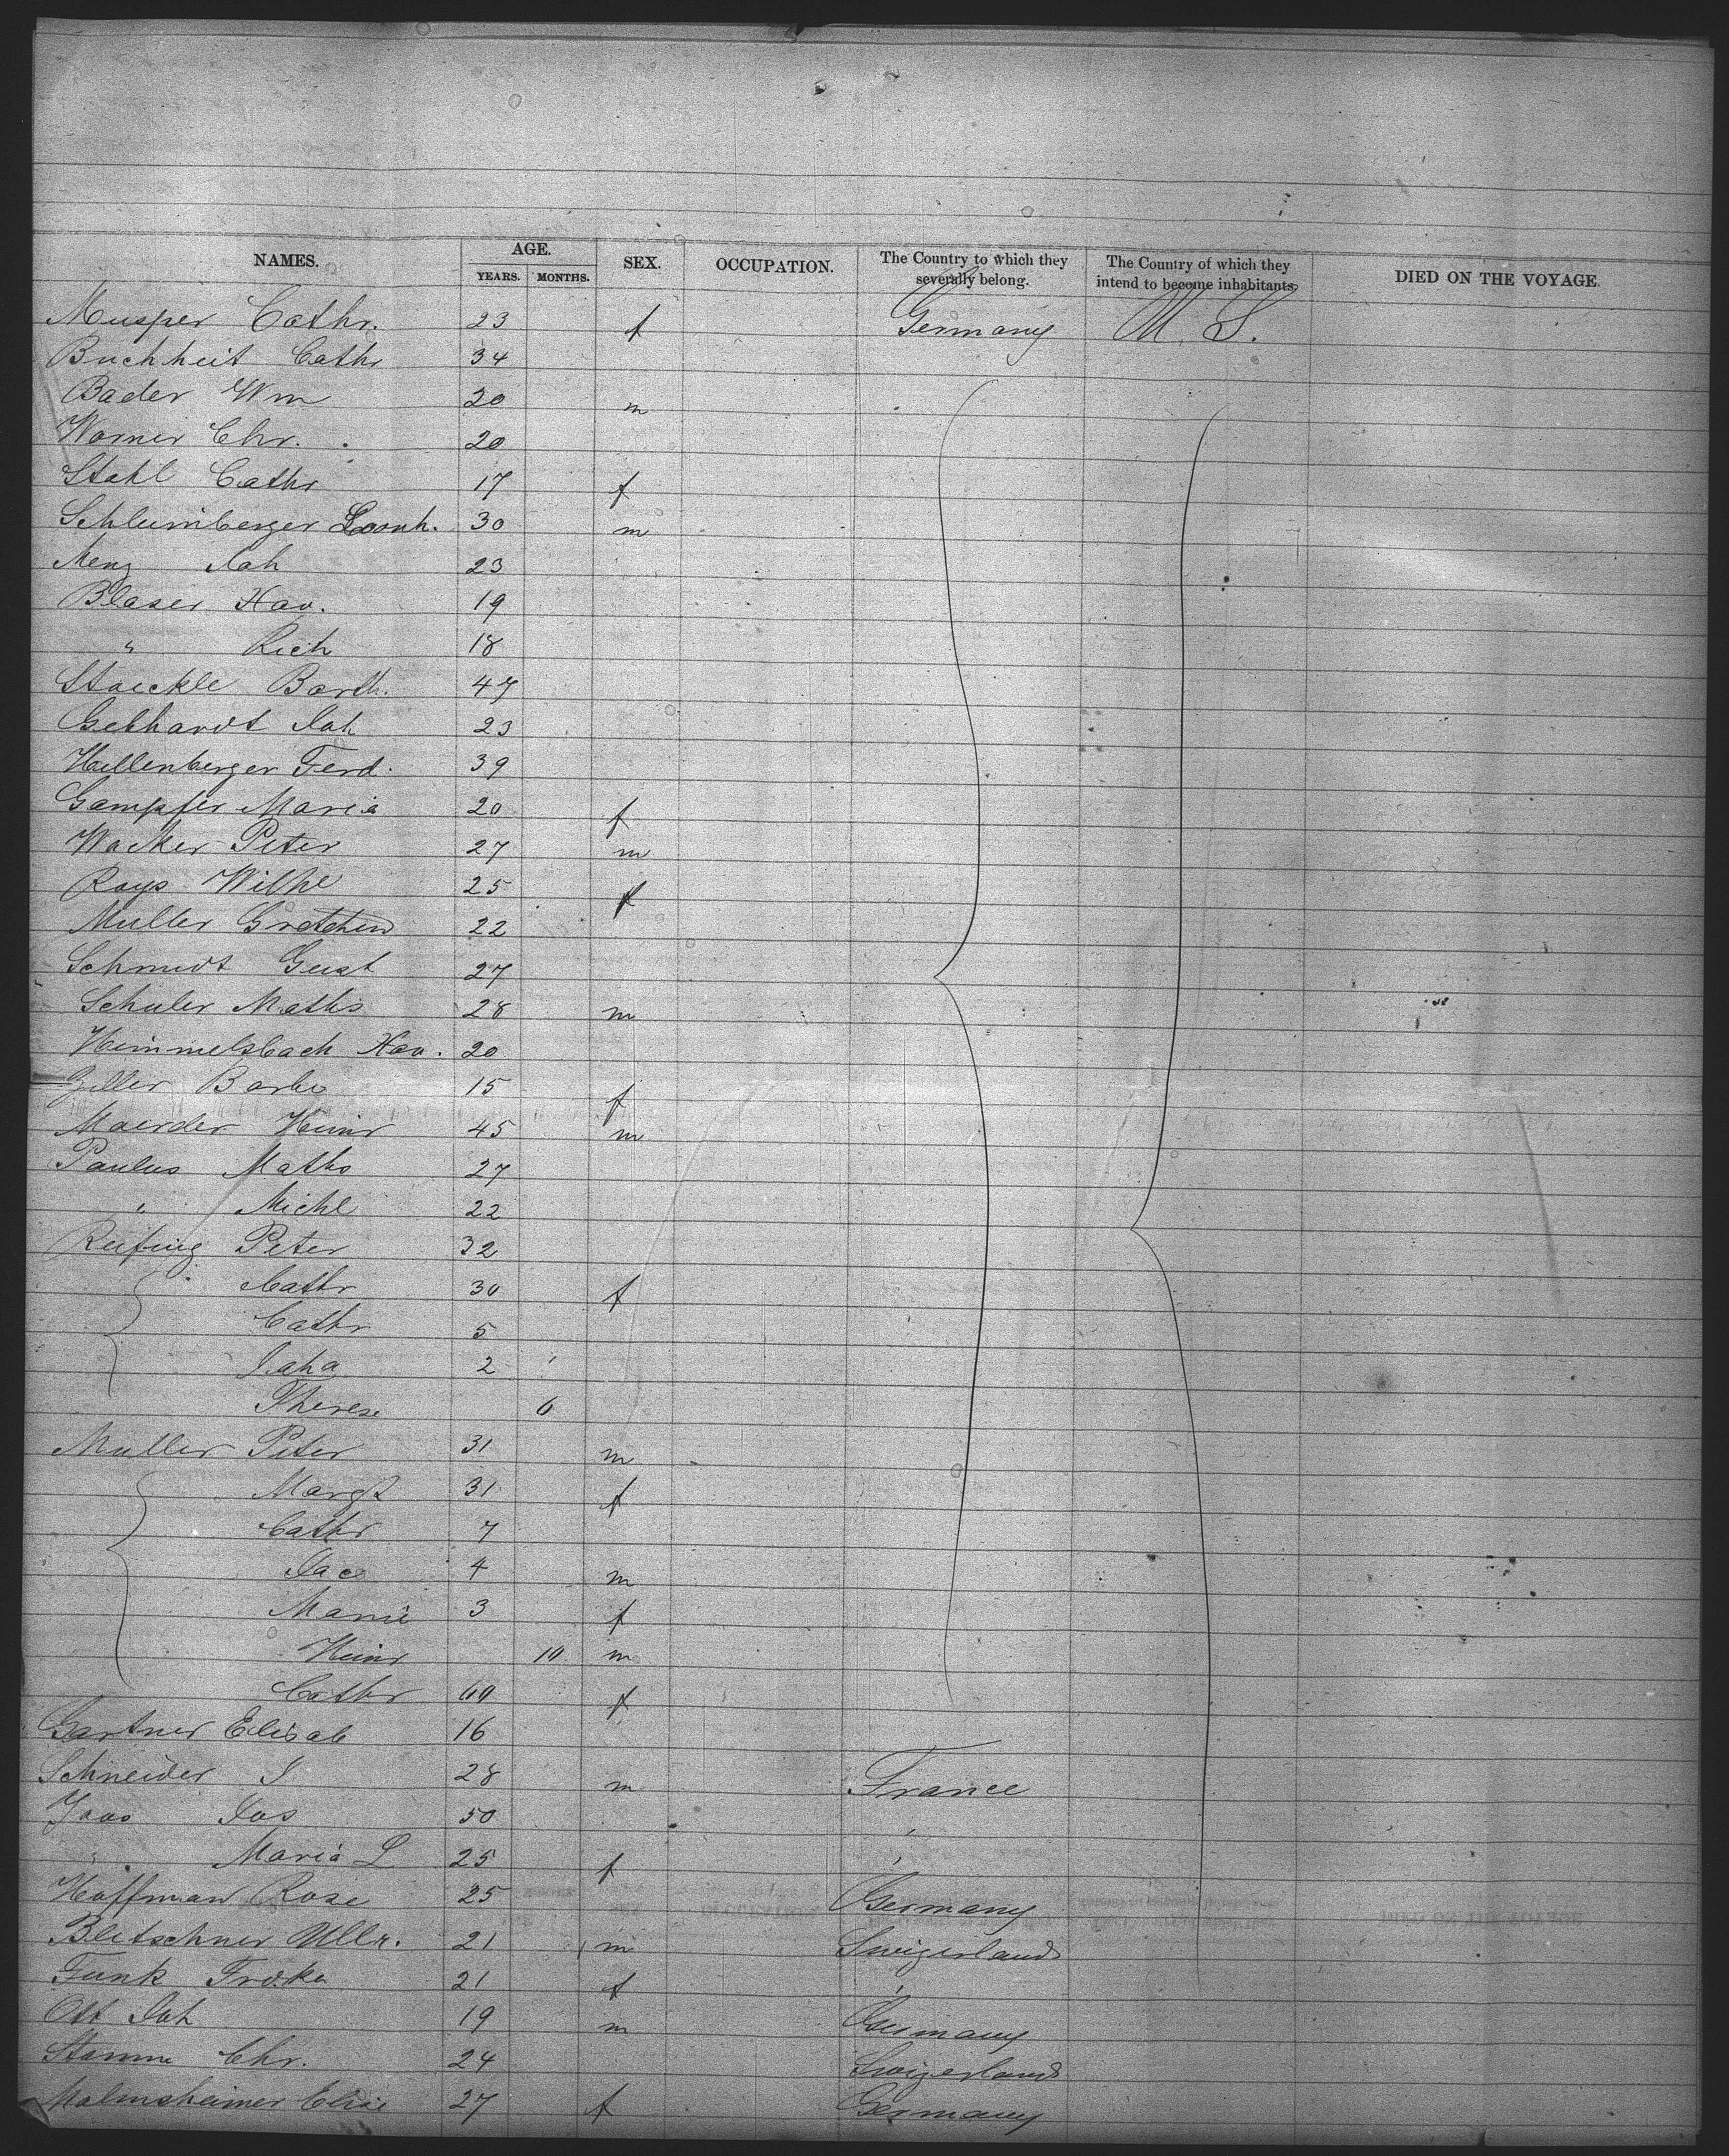 NAMES. AGE. SEX. OCCUPATION. The Country to which they severally belong. The Country of which they intend to become inhabitants. DIED ON THE VOYAGE.
YEARS. MONTHS.
Musper Cathr. 23 f Germany U. S.
Buchheit Cathr 34
Bader Wm 20 m
Worner Chr. 20
Stahl Cathr 17 f
Schlumberger Leonh. 30 m
Meng Joh 23
Blaser Xav. 19
" Rich 18
Staeckle Barth. 47
Gebhardt Joh 23
Hellenberger Ferd. 39
Gampfer Maria 20 f
Wacker Peter 27 m
Rays Wilhe 25 f
Muller Gretchen 22
Schmidt Gust 27
Schuler Maths 28 m
Himmelsbach Xav. 20
Geller Barbe 15 f
Maerder Heinr 45 m
Paulus Maths 27
" Michl 22
Reifing Peter 32
Cathr 30 f
Cathr 5
Joha 2
Therese 6
Muller Peter 31 m
Margt 31 f
Cathr 7
Jac 4 m
Marie 3 f
Heinr 10 m
Cathr 60 f
Gartner Elisab 16
Schneider J 28 m France
Joos Jos 50 "
" Maria L 25 f "
Hoffman Rose 25 Germany
Bletschner Ullr. 21 m Swizerland
Funk Frdka 21 f "
Ott Joh 19 m Germany
Stamm Chr. 24 Swizerland
Malmsheimer Elise 27 f Germany